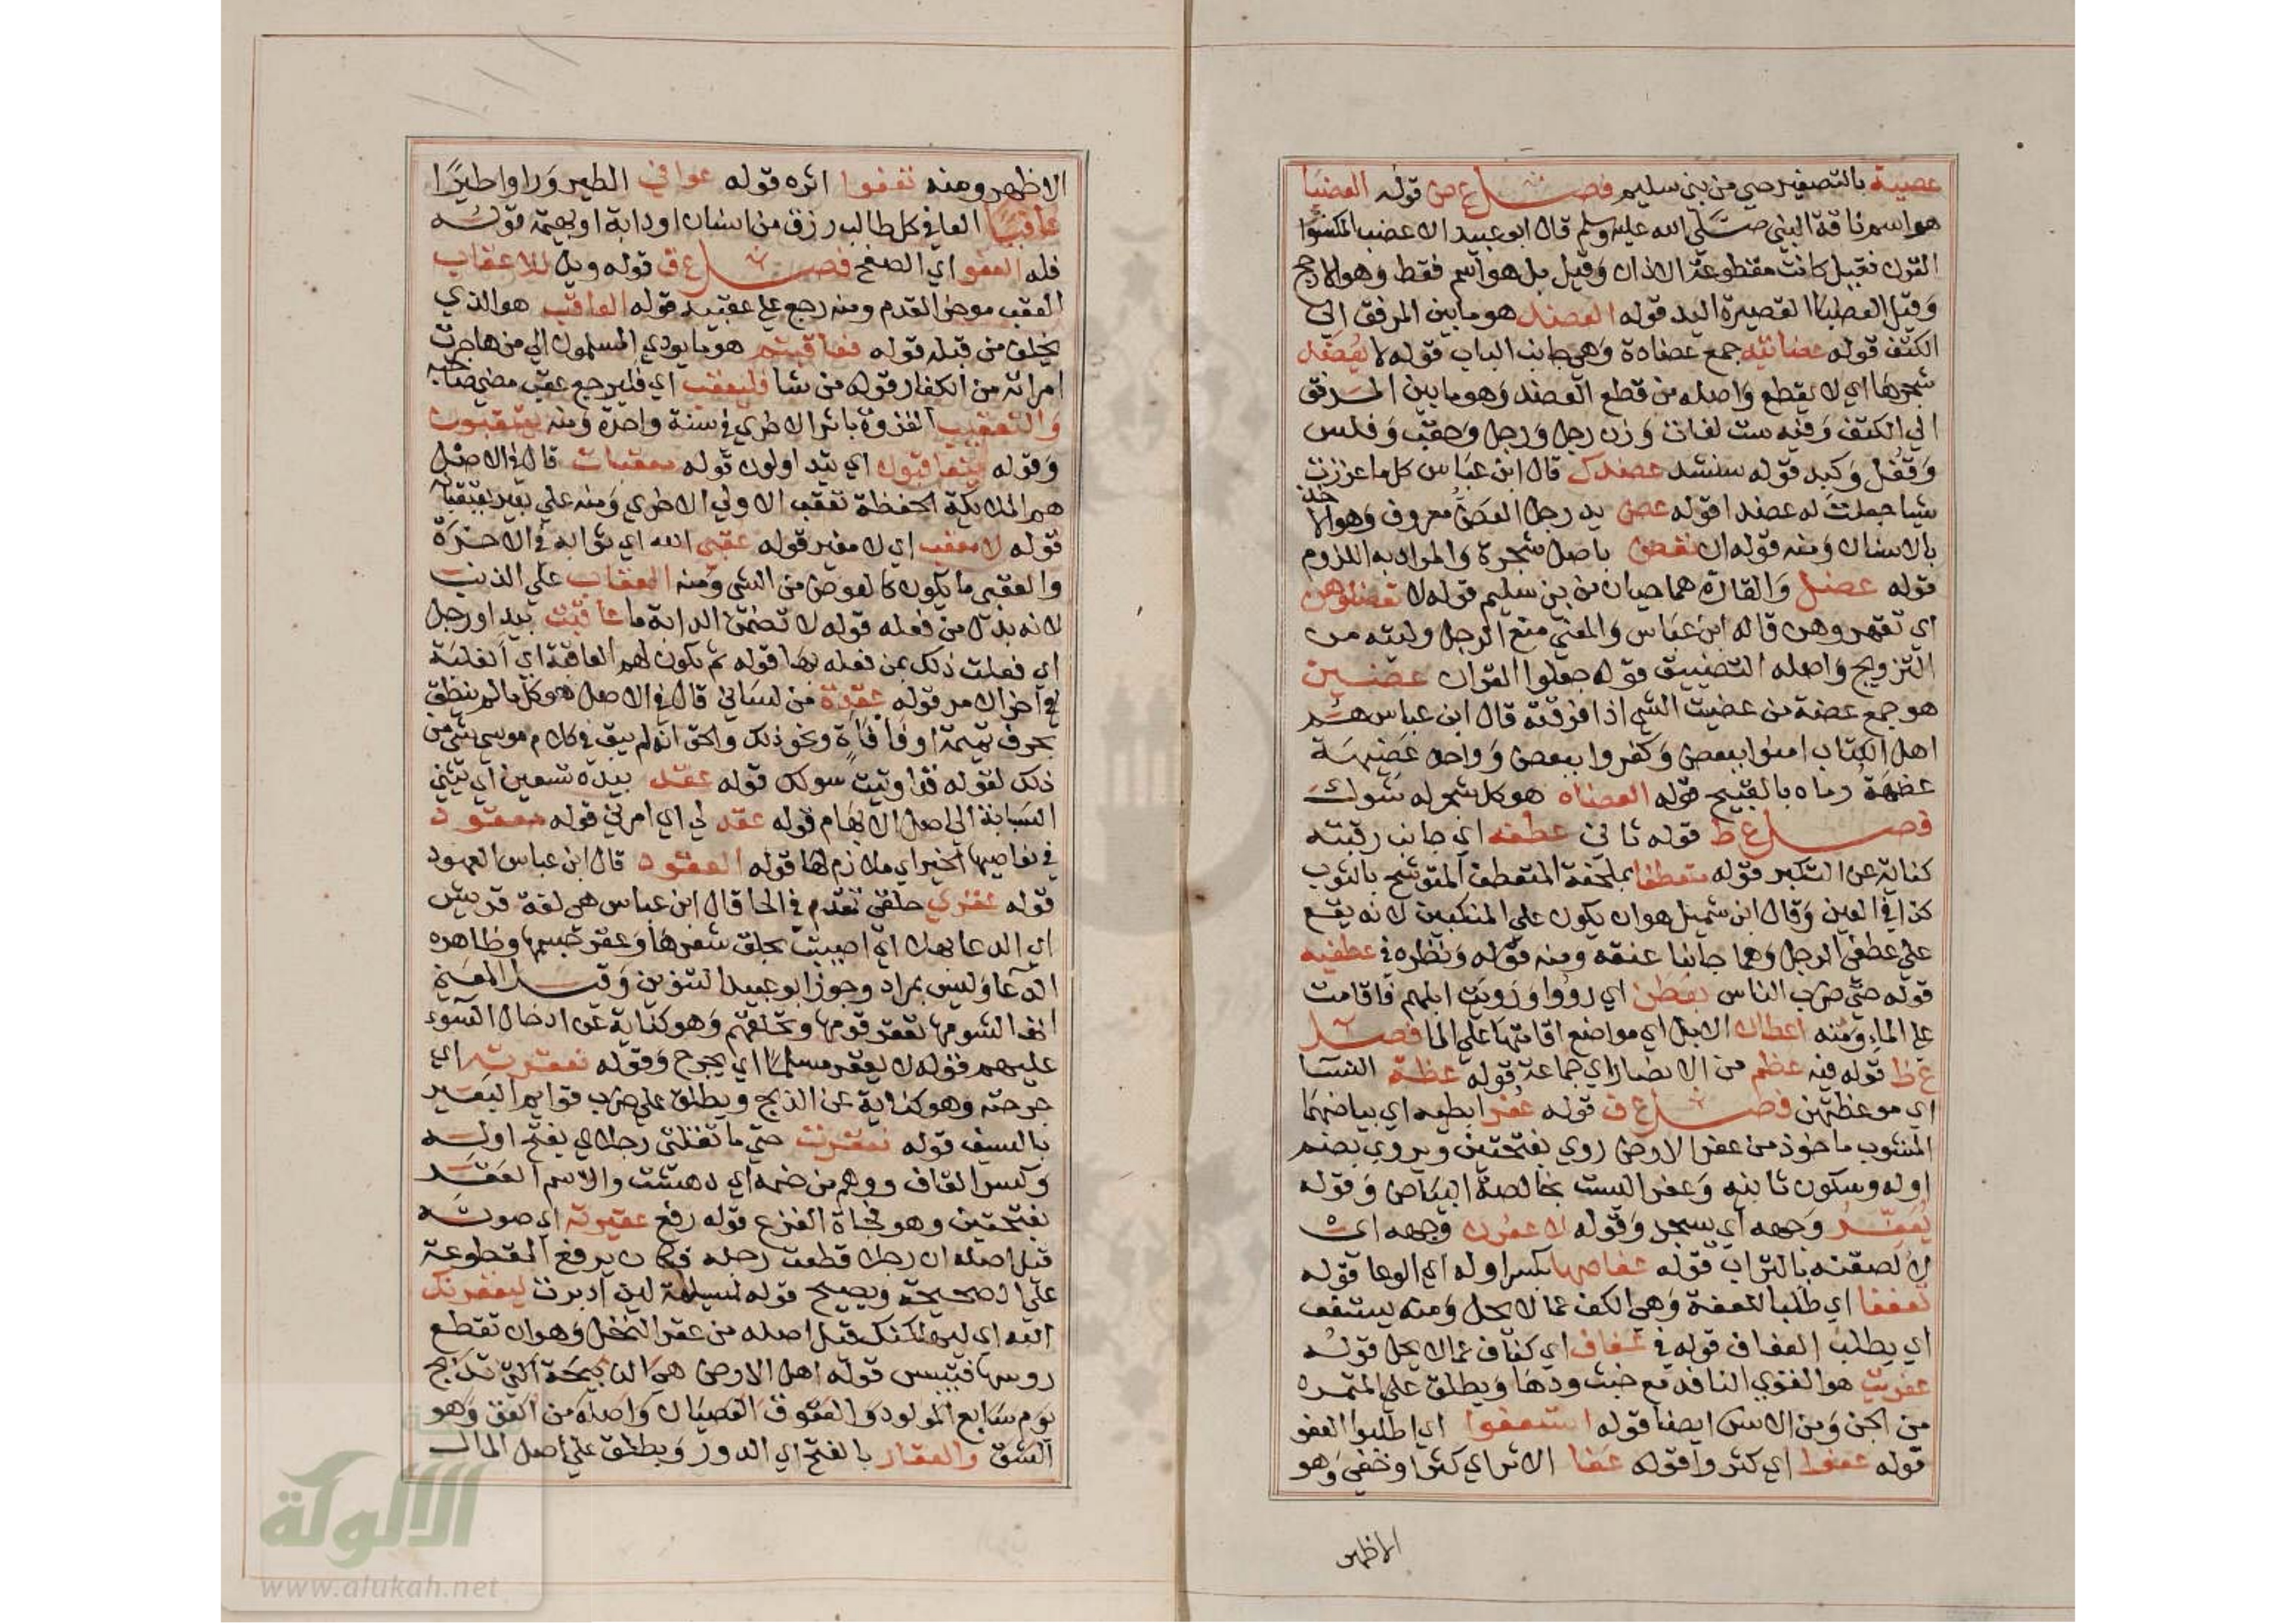 عصية بالتصغير حي من بني سليم فصل ع ض قوله العضبا
هو اسم ناقة النبي صلي الله عليه وسلم قال ابو عبيد الاعضب المكسور
القرن فقيل كانت مقطوعة الاذان وقيل بل هو اسم فقط وهو الارجح
وقيل العضبا القصيرة اليد قوله العضد هو ما بين المرفق الي
الكتف قوله عضادتيه جمع عضادة وهي جانب الباب قوله لا يعضد
شجرها اي لا يقطع واصله من قطع العضد وهو ما بين المرفق
الي الكتف وفيه ست لغات وزن رجل ورجل وحقب وفلس
وقفل وكبد قوله سنشد عضدك قال ابن عباس كلما عززت
شيا جعلت له عضدا قوله عض يد رجل العض معروف وهو الاخذ
بالاسنان ومنه قوله ان تعض باصل شجرة والمراد به اللزوم
قوله عضل والقارة هما حيان من بني سليم قوله لا تعضلوهن
اي تقهروهن قاله ابن عباس والمعني منع الرجل وليته من
التزويج واصله التضييق قوله جعلوا القران عضين
هو جمع عضة من عضيت الشي اذا فرقته قال ابن عباس هم
اهل الكتاب امنوا ببعض وكفروا ببعض وواحد عضيهة
عضهة رماه بالقبيح قوله العضاه هو كل شجر له شوك
فصل ع ط قوله ثاني عطفه اي جانب رقبته
كناية عن التكبر قوله متعطفا بملحفة المتعطف المتوشح بالثوب
كذا في العين وقال ابن شميل هو ان يكون علي المنكبين لانه يقع
علي عطفي الرجل وهما جانبا عنقه ومنه قوله ونظره في عطفيه
قوله حتي ضرب الناس بعطن اي رووا ورويت ابلهم فاقامت
علي الماء ومنه اعطان الابل اي مواضع اقامتها علي الما فصل
ع ظ قوله فيه عظم من الانصار اي جماعة قوله عظة النسا
اي موعظتهن فصل ع ف قوله عفرا ابطيه اي بياضهما
المشوب ماخوذ من عفر الارض روي بفتحتين ويروي بضم
اوله وسكون ثانيه وعفر الست بخالصة البياض وقوله
يعفر وجهه اي يسجد وقوله لاعفرن وجهه اي
لالصقنه بالتراب قوله عفاصها بكسر اوله اي الوعا قوله
تعففا اي طلبا للعفة وهي الكف عما لا يحل ومنه يستعف
اي يطلب العفاف قوله في عفاف اي كفاف عما لا يحل قوله
عفريت هو القوي النافد مع خبث ودها ويطلق علي المتمرد
من الجن ومن الانس ايضا قوله استعفوا اي اطلبوا العفو
قوله عفوا اي كثروا قوله عفا الاثر اي كثر او خفي وهو
الاظهر
الاظهر ومنه تعفوا اثره قوله عوافي الطير وراوا طيرا
عافيا العافي كل طالب رزق من انسان او دابة او بهيمة قوله
فله العفو اي الصفح فصل ع ق قوله ويل للاعقاب
العقب موخر القدم ومنه رجع علي عقبيه قوله العاقب هو الذي
يخلف من قبله قوله فعاقبتم هو ما يودي المسلمون الي من هاجرت
امراته من الكفار قوله من شا فليعقب اي فليرجع عقب مضي صاحبه
والتعقيب الغزوة باثر الاخري في سنة واحدة ومنه يعتقبون
وقوله يتعاقبون اي يتداولون قوله معقبات قال في الاصل
هم الملايكة الحفظة تعقب الاولي الاخري ومنه علي بعير يعتقبانه
قوله لا معقب اي لا مغير قوله عقبي الله اي ثوابه في الاخرة
والعقبي ما يكون كالعوض من الشي ومنه العقاب علي الذنب
لانه بدل من فعله قوله لا تضمن الدابة ما عاقبت بيد او رجل
اي فعلت ذلك بمن فعله بها قوله ثم يكون لهم العاقبة اي الغلبة
في اخر الامر قوله عقدة من لساني قال في الاصل هو كل ما لم ينطق
بحرف تمتمة او فافاة ونحو ذلك والحق انه لم يبق في كلام موسي شي من
ذلك لقوله قد اوتيت سولك قوله عقد بيده تسعين اي يثني
السبابة الي اصل الابهام قوله عقد لي اي امرني قوله معقود
في نواصيها الخير اي ملازم لها قوله العقود قال ابن عباس العهود
قوله عقري حلقي تقدم في الحا قال ابن عباس هي لغة قريش
اي الدعا بهلاك اي اصيبت بحلق شعرها وعقر جسمها وظاهره
الدعا وليس بمراد وجوز ابو عبيد التنوين وقيل المعني
انها لشومها تعقر قومها وتحلقهم وهو كناية عن ادخال السوء
عليهم فقوله لا يعقر مسلما اي يجرح وقوله فعقرته اي
جرحته وهو كناية عن الذبح ويطلق علي ضرب قوايم البعير
بالسيف قوله فعقرت حتي ما تقلني رجلاي بفتح اوله
وكسر القاف ووهم من ضمه اي دهشت والاسم العقر
بفتحتين وهو فجاة الفزع قوله رفع عقيرته اي صوته
قيل اصله ان رجلا قطعت رجله فكان يرفع المقطوعة
علي الصحيحة ويصيح قوله لمسيلمة لين ادبرت ليعقرنك
الله اي ليهلكنك قيل اصله من عقر النخل وهو ان تقطع
روسها فتيبس قوله اهل الارض هي الذبيحة التي تذبح
يوم سابع المولود والعقوق العصيان واصله من العق وهو
الشق والعقار بالفتح اي الدور ويطلق علي اصل المال
الألوكة
www.alukah.net